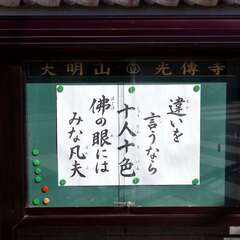 大明山 光傳寺
違いを
言うなら
十人十色
佛の眼には
みな凡夫